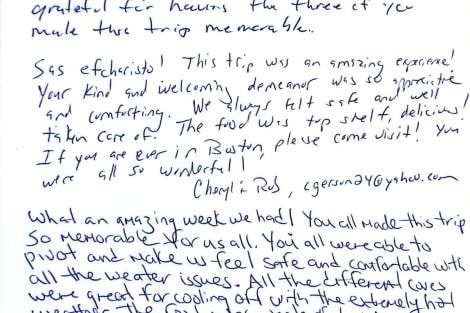 grateful for having the three of you
make this trip memorable.
Sas efcharisto! This trip was an amazing experience!
Your kind and welcoming demeanor was so
and comforting. We always felt safe and well
taken care of. The food was top shelf, delicious!
If you are ever in Boston, please come visit! You
were all so wonderful!
Cheryl & Rob, cgerson24@yahoo.com
What an amazing week we had! You all made this trip
so memorable for us all. You all were able to
pivot and make us feel safe and comfortable with
all the weater issues. All the different coves
were great for cooling off with the extremely hot